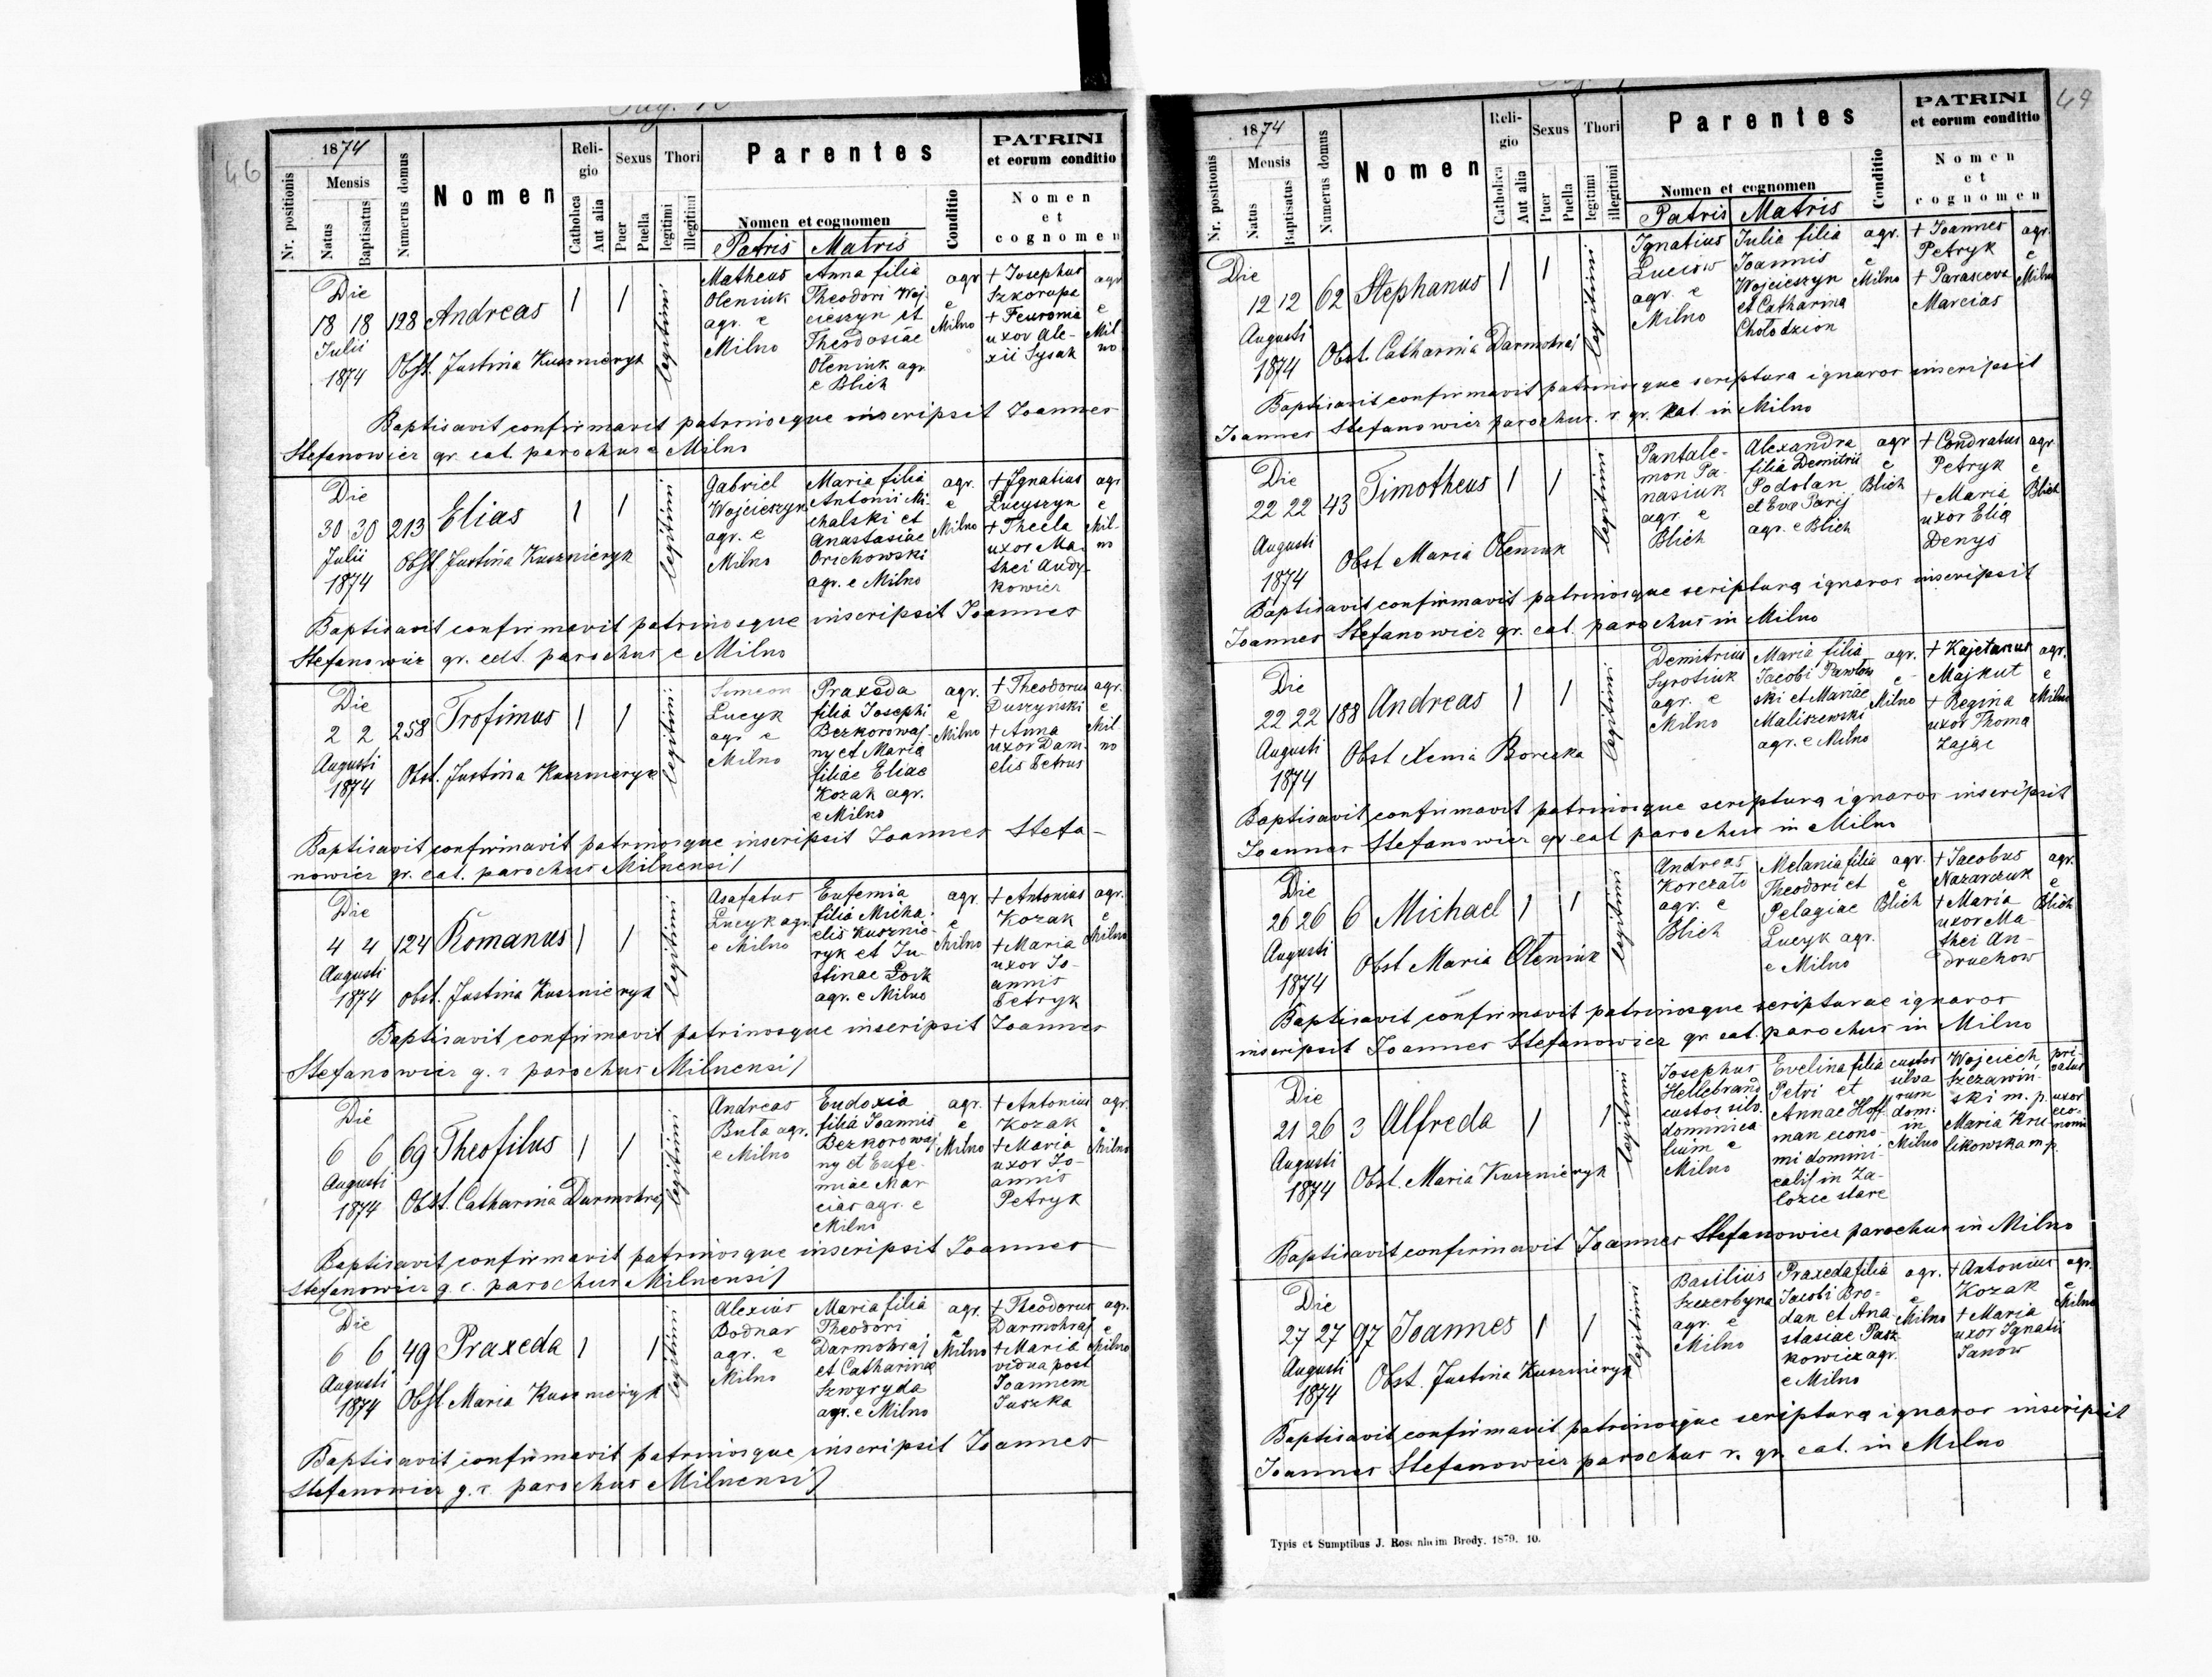 46
1874
Nr. positionis
Mensis
Natus
Baptisatus
Numerus domus
Nomen
Religio
Catholica
Aut alia
Sexus
Puer
Puella
Thori
legitimi
illegitimi
Parentes
Nomen et cognomen
Patris Matris
Conditio
PATRINI
et eorum conditio
Nomen
et
cognomen
Die
18 18 128 Andreas 1 1 legitimi
Julii
1874
Obst. Justina Kusznieryk
Matheus
Oleniuk
agr. e
Milno
Anna filia
Theodori Woj-
cieszyn et
Theodosiae
Oleniuk agr
e Blich
agr
e
Milno
+ Josephus
Szkorupa
+ Feuronia
uxor Ale-
xii Sysak
agr
e
Mil-
no
Baptisavit confirmavit patrinosque inscripsit Joannes
Stefanowicz gr. cat. parochus e Milno
Die
30 30 213 Elias 1 1 legitimi
Julii
1874
Obst. Justina Kusznieryk
Gabriel
Wojcieszyn
agr. e
Milno
Maria filia
Antonii Mi-
chalski et
Anastasiae
Orichowski
agr. e Milno
agr.
e
Milno
+ Ignatius
Lucyszyn
+ Thecla
uxor Ma-
thei Andy-
kowicz
agr
e
Mil-
no
Baptisavit confirmavit patrinosque inscripsit Joannes
Stefanowicz gr. cat. parochus e Milno
Die
2 2 258 Trofimus 1 1 legitimi
Augusti
1874
Obst. Justina Kusznieryk
Simeon
Lucyk
agr e
Milno
Praxeda
filia Josephi
Bezkorowaj-
ny et Maria
filiae Eliae
Kozak agr.
e Milno
agr.
e
Milno
+ Theodorus
Duszynski
+ Anna
uxor Dani-
elis Petrus
agr.
e
Mil-
no
Baptisavit confirmavit patrinosque inscripsit Joannes Stefa-
nowicz gr. cat. parochus Milnensis
Die
4 4 124 Romanus 1 1 legitimi
Augusti
1874
Obst. Justina Kusznieryk
Asafatus
Lucyk agr.
e Milno
Eufemia
filia Micha-
elis Kusznie-
ryk et Ju-
stinae
agr. e Milno
agr.
e
Milno
+ Antonius
Kozak
+ Maria
uxor Jo-
annis
Petryk
agr.
e
Milno
Baptisavit confirmavit patrinosque inscripsit Joannes
Stefanowicz g. c. parochus Milnensis
Die
6 6 69 Theofilus 1 1 legitimi
Augusti
1874
Obst. Catharina Darmohraj
Andreas
Buła agr.
e Milno
Eudoxia
filia Joannis
Bezkorowaj-
ny et Eufe-
miae Mar
cias agr. e
Milno
agr.
e
Milno
+ Antonius
Kozak
+ Maria
uxor Jo-
annis
Petryk
agr.
e
Milno
Baptisavit confirmavit patrinosque inscripsit Joannes
Stefanowicz g. c. parochus Milnensis
Die
6 6 49 Praxeda 1 1 legitimi
Augusti
1874
Obst. Maria Kusznieryk
Alexius
Bodnar
agr. e
Milno
Maria filia
Theodori
Darmohraj
et Catharina
Szwyryda
agr. e Milno
agr.
e
Milno
+ Theodorus
Darmohraj
+ Maria
vidua post
Joannem
Juszka
agr.
e
Milno
Baptisavit confirmavit patrinosque inscripsit Joannes
Stefanowicz g. c. parochus Milnensis
1874
Nr. positionis
Mensis
Natus
Baptisatus
Numerus domus
Nomen
Religio
Catholica
Aut alia
Sexus
Puer
Puella
Thori
legitimi
illegitimi
Parentes
Nomen et cognomen
Patris Matris
Conditio
PATRINI
et eorum conditio
Nomen
et
cognomen
Die
12 12 62 Stephanus 1 1 legitimi
Augusti
1874
Obst. Catharina Darmohraj
Ignatius
Luciow
agr. e
Milno
Julia filia
Joannis
Wojcieszyn
et Catharina
Chołodzion
agr.
e
Milno
+ Joannes
Petryk
+ Parasceva
Marcias
agr.
e
Milno
Baptisavit confirmavit patrinosque scriptura ignaros inscripsit
Joannes Stefanowicz parochus r. gr. kat. in Milno
Die
22 22 43 Timotheus 1 1 legitimi
Augusti
1874
Obst Maria Oleniuk
Pantale-
mon Pa-
nasiuk
agr e
Blich
Alexandra
filia Demitrii
Podolan
et Eva Parij
agr. e Blich
agr
e
Blich
+ Condratus
Petryk
+ Maria
uxor Elia
Denys
agr
e
Blich
Baptisavit confirmavit patrinosque scriptura ignaros inscripsit
Joannes Stefanowicz gr. cat. parochus in Milno
Die
22 22 188 Andreas 1 1 legitimi
Augusti
1874
Obst Xenia Borecka
Demitrius
Syrotiuk
agr. e
Milno
Maria filia
Jacobi Pawłow
ski et Mariae
Maliszewski
agr. e Milno
agr.
e
Milno
+ Kajetanus
Majkut
+ Regina
uxor Thoma
Zając
agr.
e
Milno
Baptisavit confirmavit patrinosque scriptura ignaros inscripsit
Joannes Stefanowicz gr cat parochus in Milno
Die
26 26 6 Michael 1 1 legitimi
Augusti
1874
Obst Maria Oleniuk
Andreas
agr. e
Blich
Melania filia
Theodori et
Pelagiae
Lucyk agr.
e Milno
agr.
e
Blich
+ Jacobus
Nazarczuk
+ Maria
uxor Ma-
thei An-
druchow
agr.
e
Blich
Baptisavit confirmavit patrinosque scripturae ignaros
inscripsit Joannes Stefanowicz gr cat. parochus in Milno
Die
21 26 3 Alfreda 1 1 legitimi
Augusti
1874
Obst. Maria Kusznieryk
Josephus
Hellebrand
custos silv.
dominica
lium e
Milno
Evelina filia
Petri et
Annae Hoff
man econo-
mi domini-
calis in Za-
lozce stare
custos
silva
rum
dom.
in
Milno
Wojciech
Szczawiń-
ski m. p.
Maria Kru-
likowska m.p.
pri-
vatus
uxor
eco-
nomi
Baptisavit confirmavit Joannes Stefanowicz parochus in Milno
Die
27 27 97 Joannes 1 1 legitimi
Augusti
1874
Obst. Justina Kusznieryk
Basilius
Szczerbyna
agr. e
Milno
Praxeda filia
Jacobi Bro-
dan et Ana-
stasiae Pasz
kowicz agr.
e Milno
agr.
e
Milno
+ Antonius
Kozak
+ Maria
uxor Ignatii
Janow
agr.
e
Milno
Baptisavit confirmavit patrinosque scriptura ignaros inscripsit
Joannes Stefanowicz parochus r. gr. cat. in Milno
Typis et Sumptibus J. Rosenheim Brody. 1879. 10.